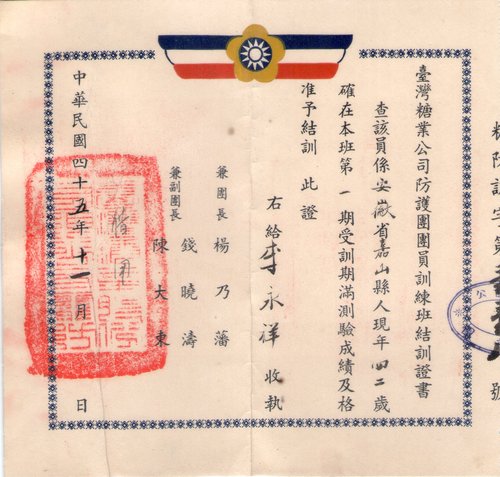 糖防訓字第號
臺灣糖業公司防護團團員訓練班結訓證書
查該員係安徽省嘉山縣人現年四二歲
確在本班第一期受訓期滿測驗成績及格
准予結訓此證
右給李永祥收執
兼團長楊乃藩
兼副團長錢曉濤
陳大東
中華民國四十五年十一月日